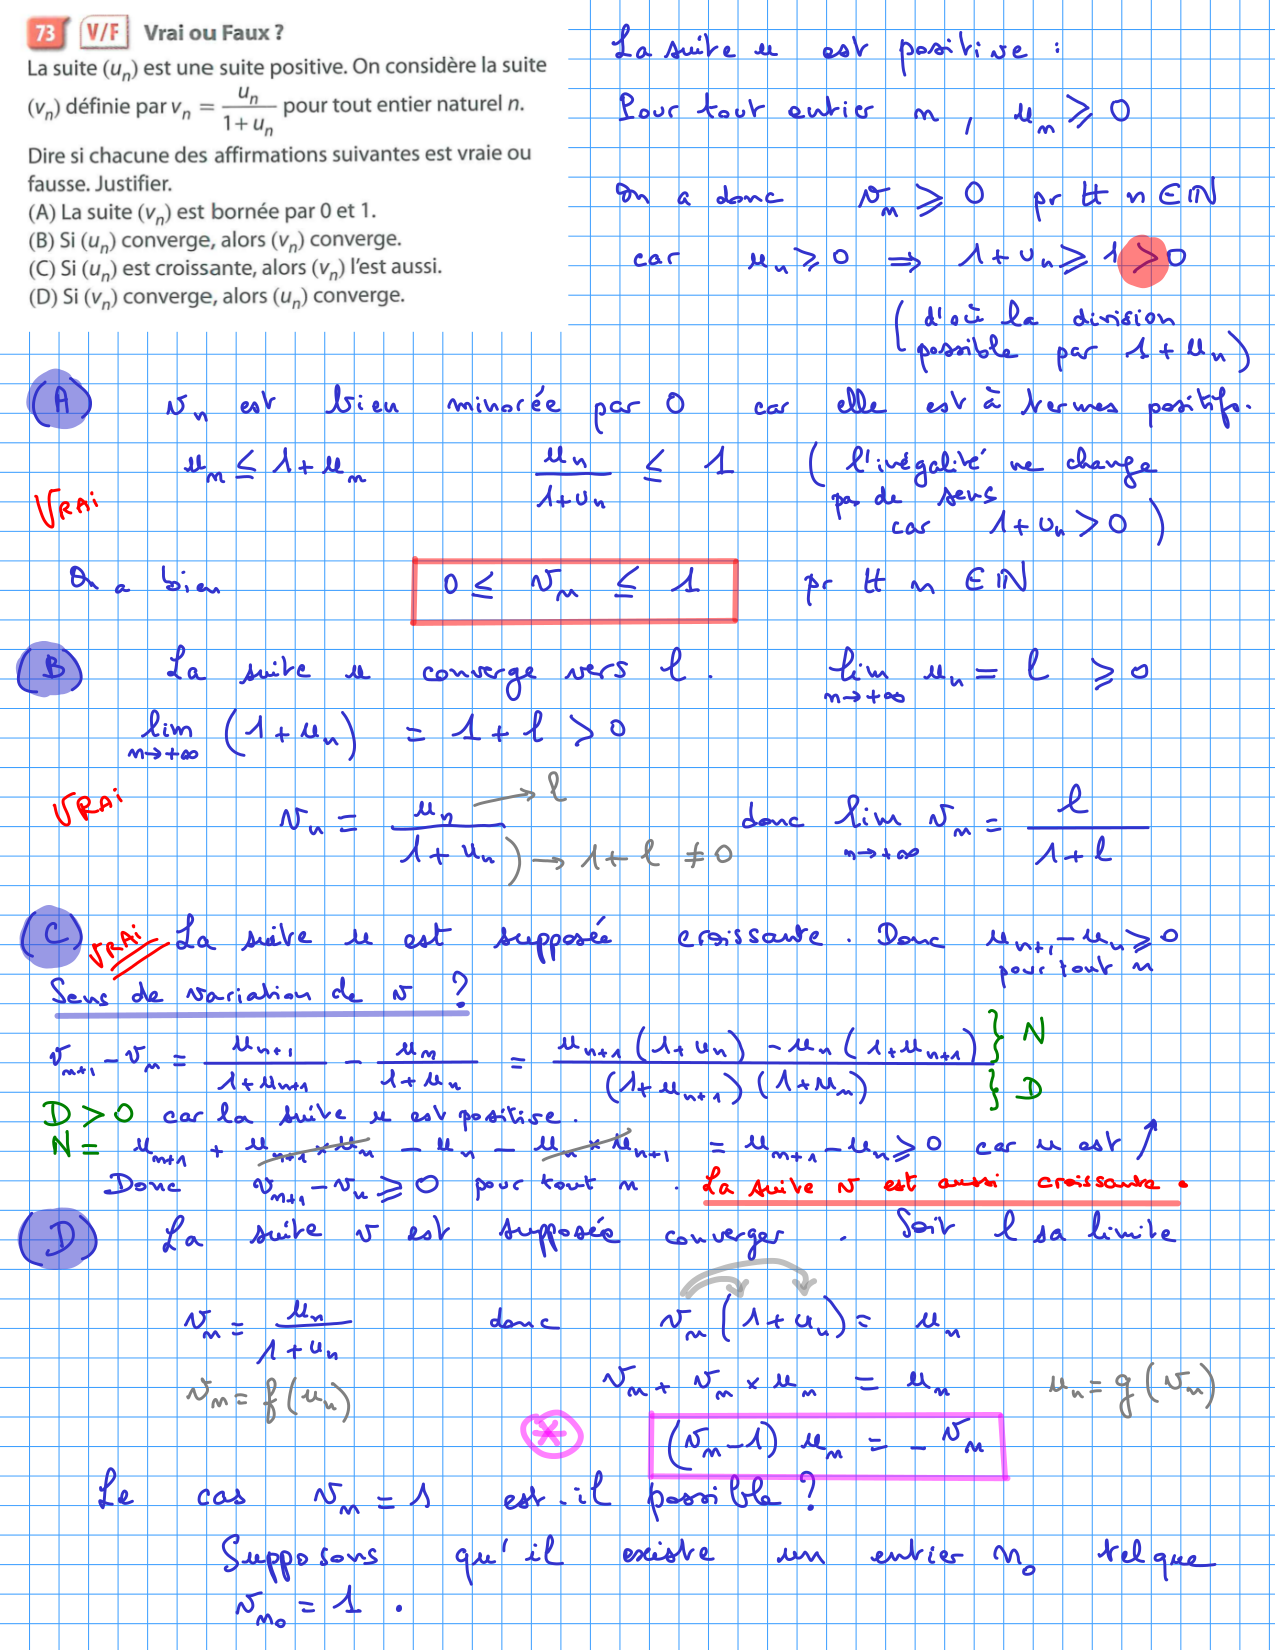 73 V/F Vrai ou Faux ?
La suite (uₙ) est une suite positive. On considère la suite
(vₙ) définie par vₙ = uₙ / (1 + uₙ) pour tout entier naturel n.
Dire si chacune des affirmations suivantes est vraie ou
fausse. Justifier.
(A) La suite (vₙ) est bornée par 0 et 1.
(B) Si (uₙ) converge, alors (vₙ) converge.
(C) Si (uₙ) est croissante, alors (vₙ) l'est aussi.
(D) Si (vₙ) converge, alors (uₙ) converge.
La suite u est positive :
Pour tout entier n, uₙ ⩾ 0
On a donc vₙ ⩾ 0 pr tt n ∈ ℕ
car uₙ ⩾ 0 ⇒ 1 + uₙ ⩾ 1 > 0
(d'où la division
possible par 1 + uₙ)
(A) vₙ est bien minorée par 0 car elle est à termes positifs.
uₙ ≤ 1 + uₙ uₙ / (1 + uₙ) ≤ 1 (l'inégalité ne change
pas de sens
VRAi car 1 + uₙ > 0)
On a bien 0 ≤ vₙ ≤ 1 pr tt n ∈ ℕ
(B) La suite u converge vers l. lim n→+∞ uₙ = l ⩾ 0
lim n→+∞ (1 + uₙ) = 1 + l > 0
VRAi vₙ = uₙ / (1 + uₙ) → l ) → 1 + l ≠ 0 donc lim n→+∞ vₙ = l / (1 + l)
(C) VRAi La suite u est supposée croissante. Donc uₙ₊₁ − uₙ ⩾ 0
pour tout n
Sens de variation de v ?
vₙ₊₁ − vₙ = uₙ₊₁ / (1 + uₙ₊₁) − uₙ / (1 + uₙ) = (uₙ₊₁ (1 + uₙ) − uₙ (1 + uₙ₊₁)) / ((1 + uₙ₊₁) (1 + uₙ)) } N } D
D > 0 car la suite u est positive.
N = uₙ₊₁ + uₙ₊₁ × uₙ − uₙ − uₙ × uₙ₊₁ = uₙ₊₁ − uₙ ⩾ 0 car u est ↗
Donc vₙ₊₁ − vₙ ⩾ 0 pour tout n. La suite v est aussi croissante.
(D) La suite v est supposée converger. Soit l sa limite
vₙ = uₙ / (1 + uₙ) donc vₙ (1 + uₙ) = uₙ
vₙ = f(uₙ) vₙ + vₙ × uₙ = uₙ uₙ = g(vₙ)
* (vₙ − 1) uₙ = − vₙ
Le cas vₙ = 1 est-il possible ?
Supposons qu'il existe un entier n₀ tel que
vₙ₀ = 1.